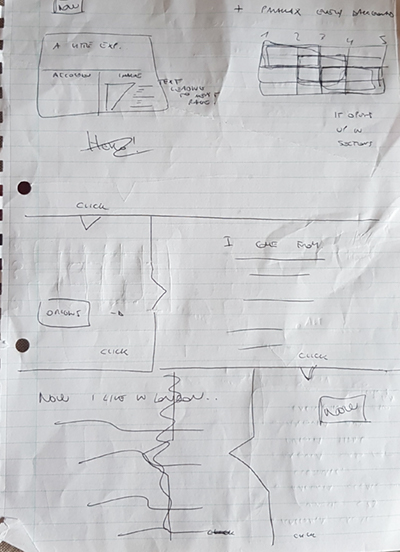 NOW
+ PARALLAX LOVELY BACKGROUND
A LITTLE EXP.
1 2 3 4 5
ACCORDION IMAGE
TEXT
LEADING
TO NEXT
PANEL
IT OPENS
UP IN
SECTIONS
Hello!
CLICK
I COME FROM
ORIGINS
CLICK
CLICK
NOW I LIVE IN LONDON..
NOW
CLICK